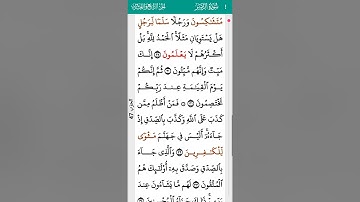 سُورَةُ الزُّمَرِ
مُتَشَٰكِسُونَ وَرَجُلًا سَلَمًا لِّرَجُلٍ
هَلْ يَسْتَوِيَانِ مَثَلًا ۚ ٱلْحَمْدُ لِلَّهِ ۚ بَلْ
أَكْثَرُهُمْ لَا يَعْلَمُونَ ۝ إِنَّكَ
مَيِّتٌ وَإِنَّهُم مَّيِّتُونَ ۝ ثُمَّ إِنَّكُمْ
يَوْمَ ٱلْقِيَٰمَةِ عِندَ رَبِّكُمْ
تَخْتَصِمُونَ ۝ فَمَنْ أَظْلَمُ مِمَّن
كَذَبَ عَلَى ٱللَّهِ وَكَذَّبَ بِٱلصِّدْقِ إِذْ
جَآءَهُۥٓ ۚ أَلَيْسَ فِى جَهَنَّمَ مَثْوًى
لِّلْكَٰفِرِينَ ۝ وَٱلَّذِى جَآءَ
بِٱلصِّدْقِ وَصَدَّقَ بِهِۦٓ ۙ أُو۟لَٰٓئِكَ هُمُ
ٱلْمُتَّقُونَ ۝ لَهُم مَّا يَشَآءُونَ عِندَ